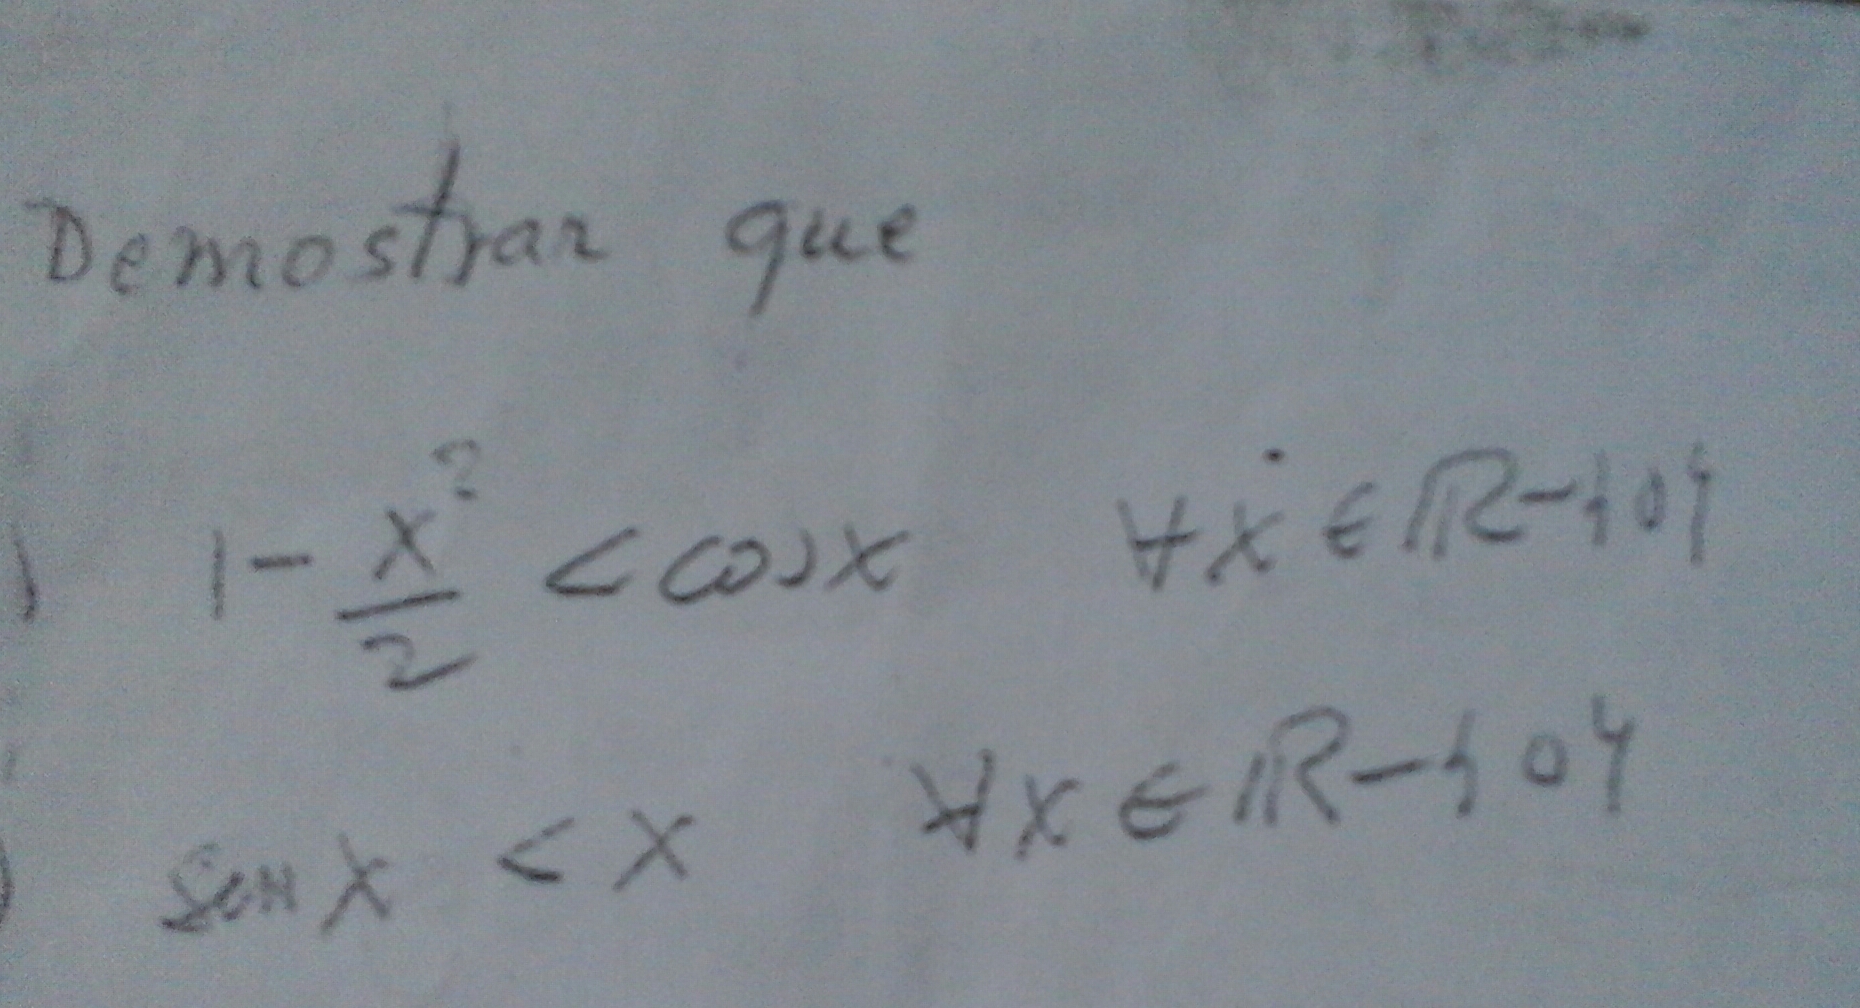 Demostrar que
) 1 - x²/2 < cos x ∀x ∈ ℝ-{0}
) sen x < x ∀x ∈ ℝ-{0}